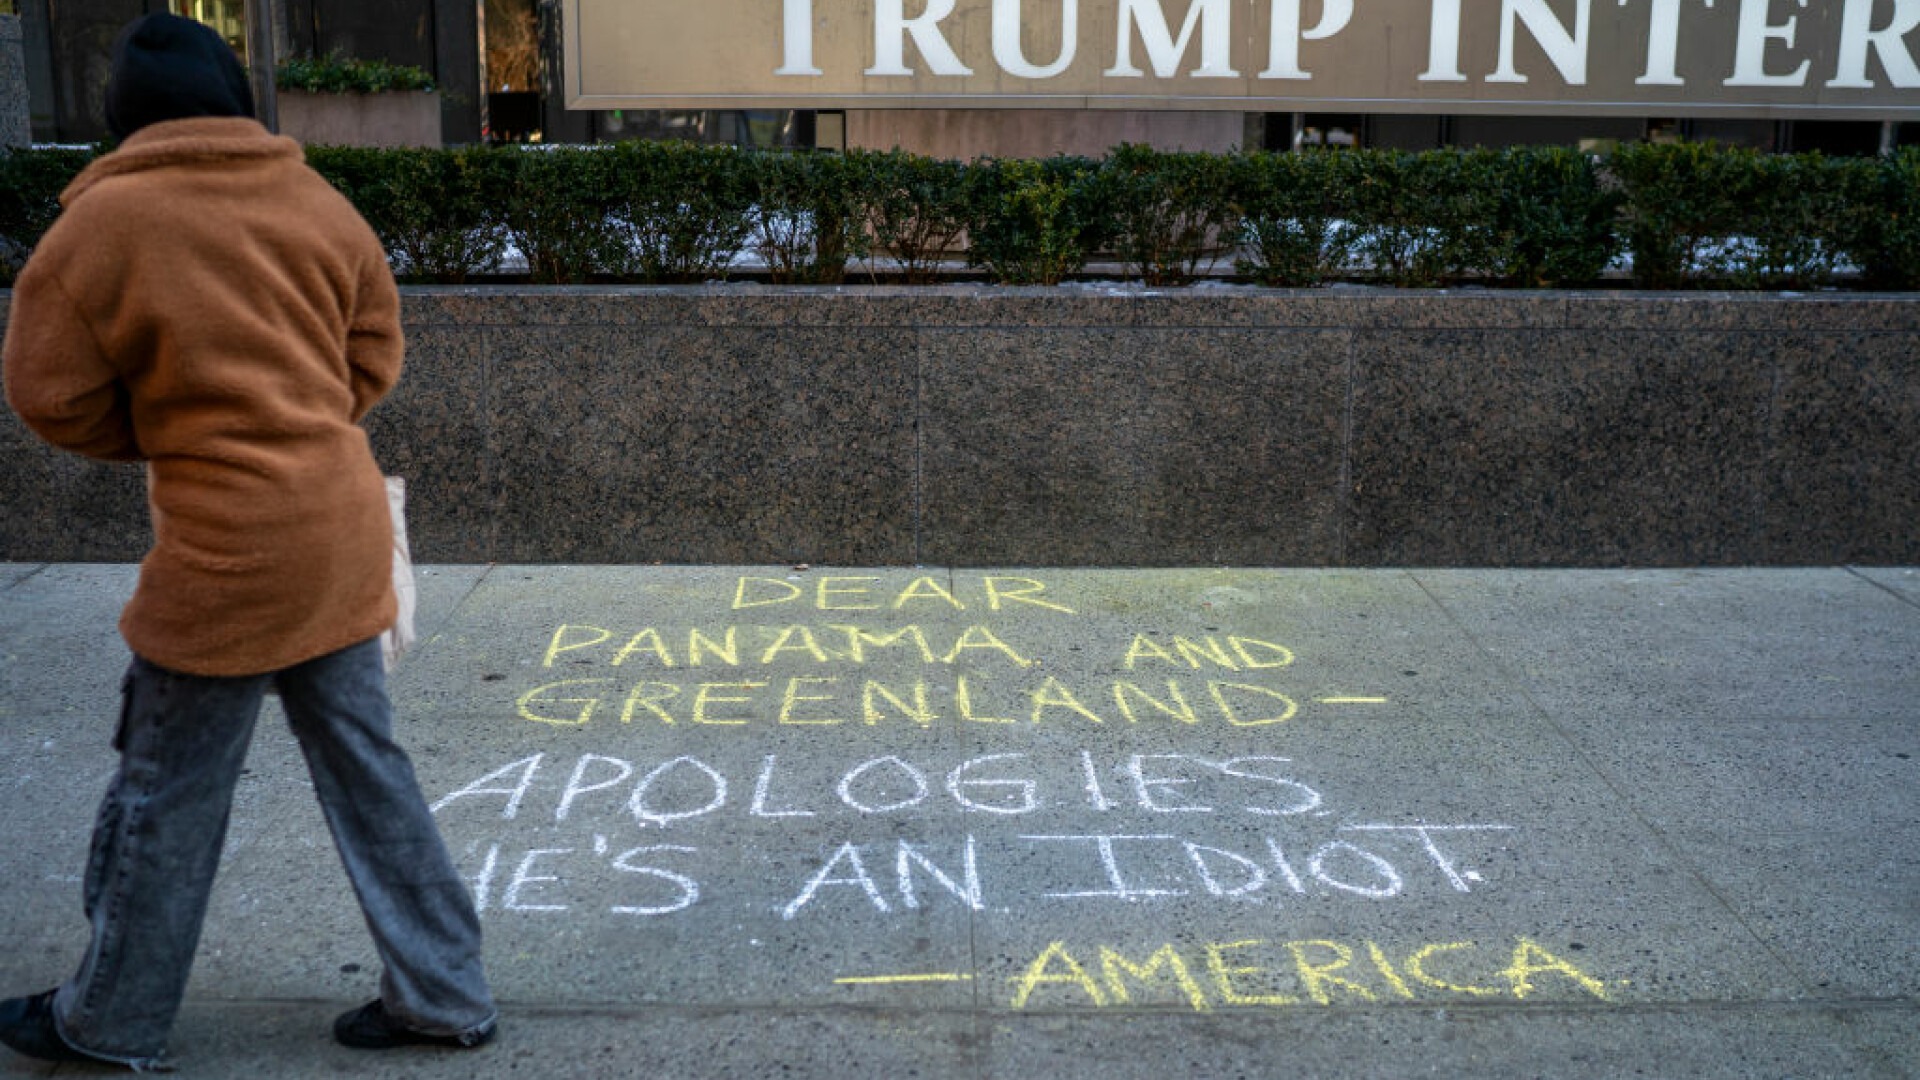 TRUMP INTER
DEAR
PANAMA AND
GREENLAND—
APOLOGIES,
HE'S AN IDIOT.
— AMERICA